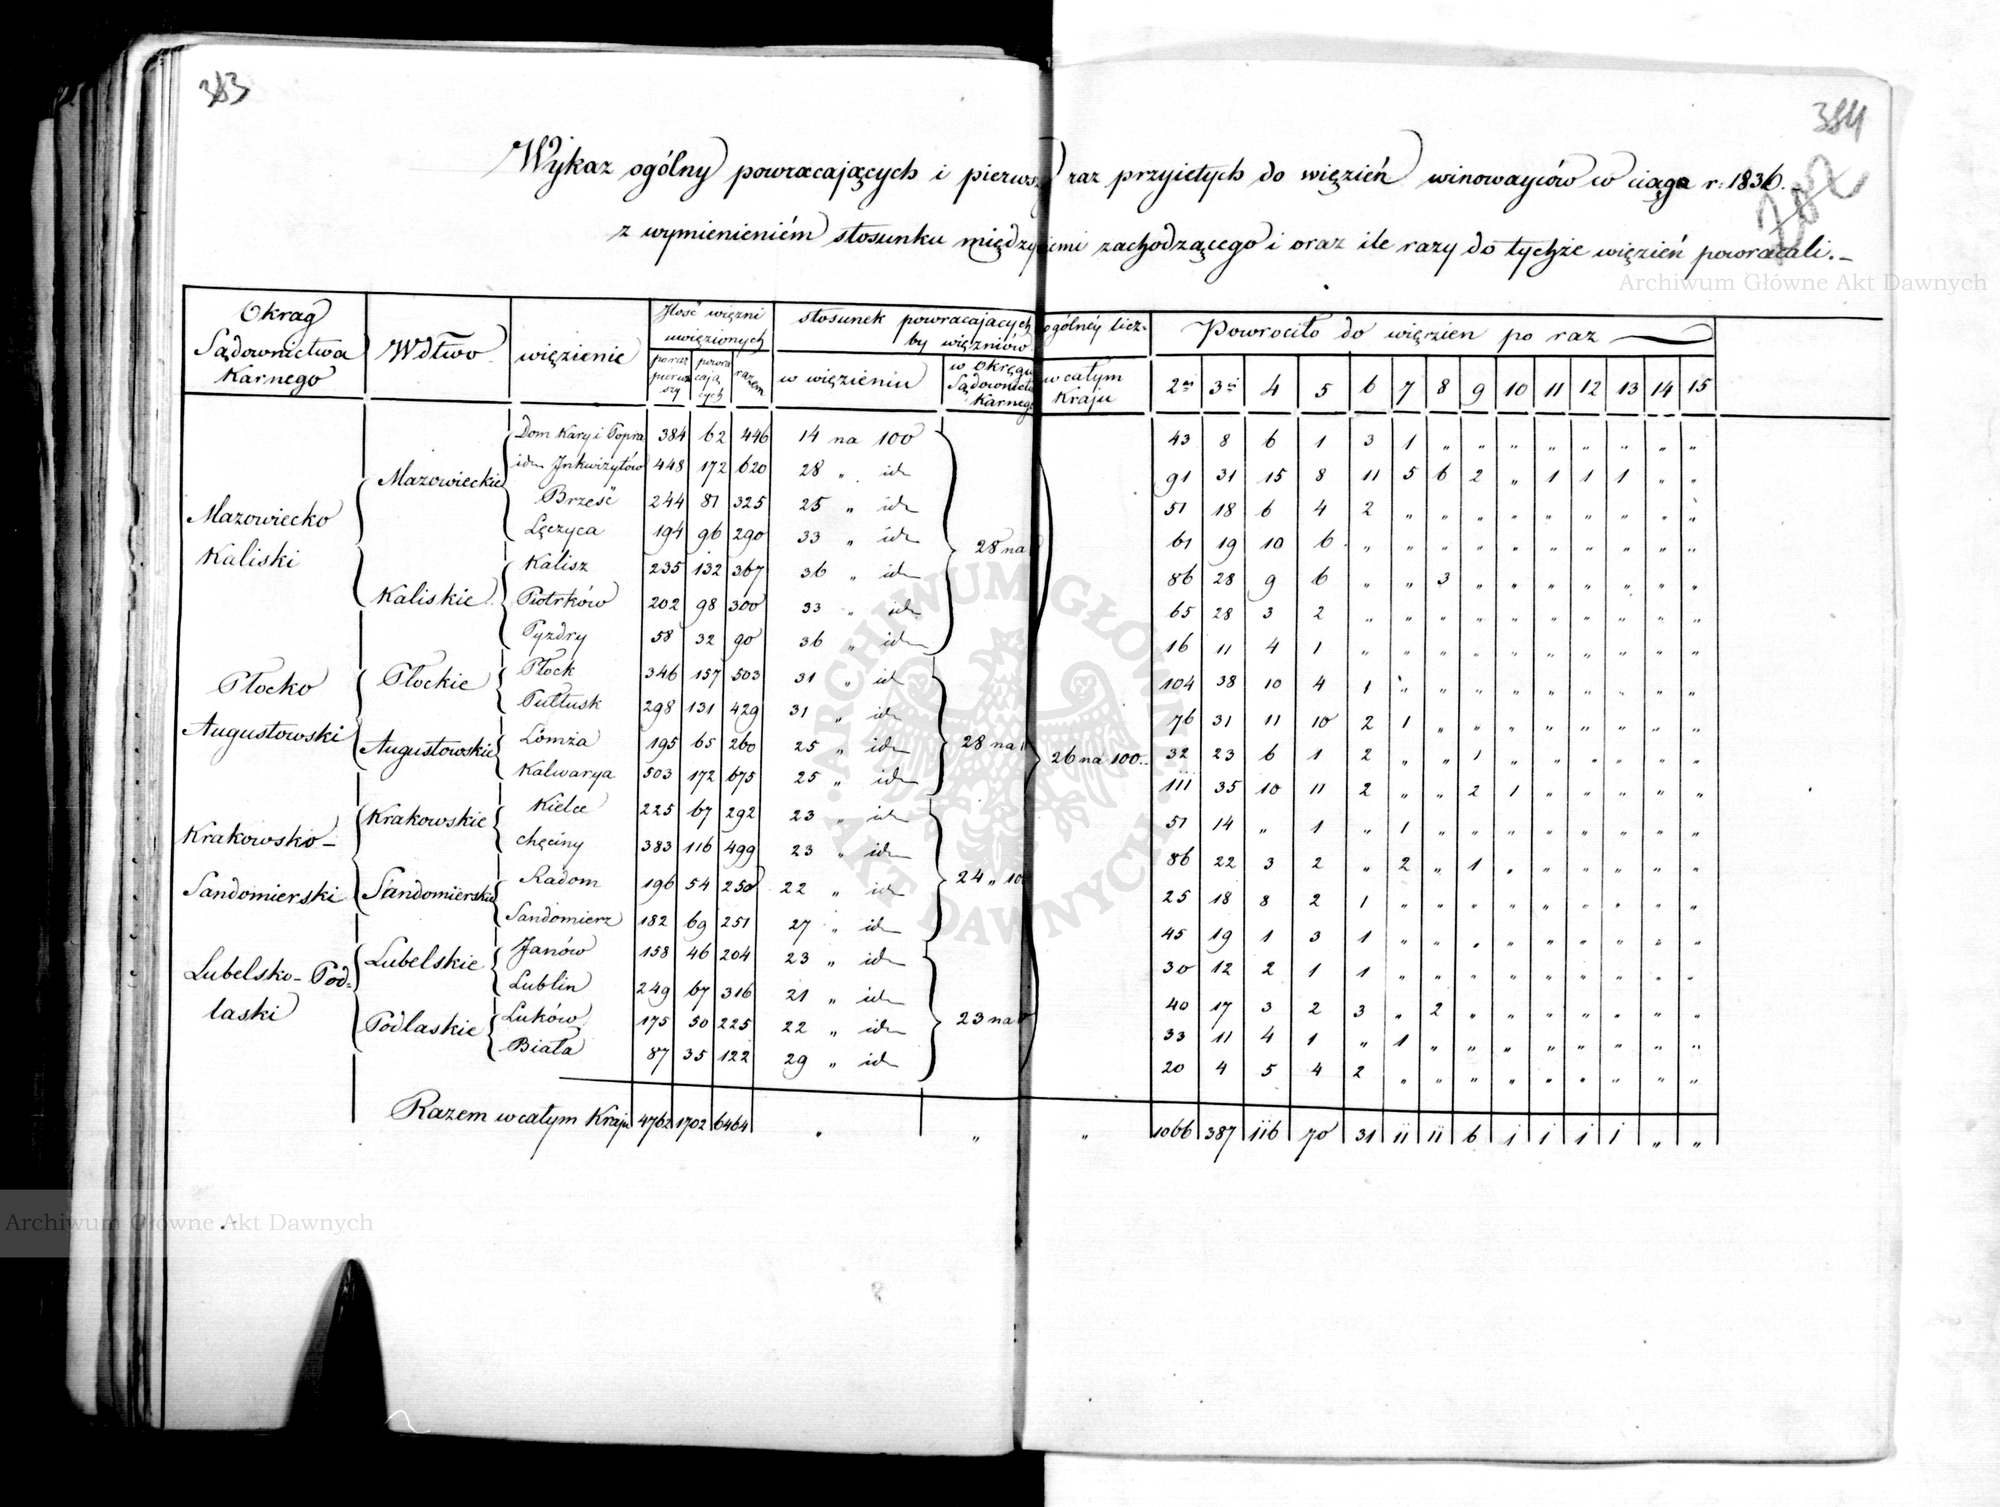 383
384
Wykaz ogólny powracających i pierwszy raz przyiętych do więzień winowayców w ciągu r: 1836.
z wymienieniém stosunku między niemi zachodzącego i oraz ile razy do tychże więzień powracali.
Archiwum Główne Akt Dawnych
Okrąg Sądownictwa Karnego | Wdtwo | więzienie | Ilość więzni uwięzionych | stosunek powracających ogólnéy licz- by więzniów | Powrociło do więzien po raz
po raz pierwszy | powracających | razem | w więzieniu | w Okręgu Sądownictwa Karnego | w całym Kraju | 2gi | 3ci | 4 | 5 | 6 | 7 | 8 | 9 | 10 | 11 | 12 | 13 | 14 | 15
Mazowiecko Kaliski | Mazowieckie | Dom Kary i Popra | 384 | 62 | 446 | 14 na 100 | 28 na | 26 na 100 | 43 | 8 | 6 | 1 | 3 | 1 | „ | „ | „ | „ | „ | „ | „ | „
idm Inkwizytów | 448 | 172 | 620 | 28 „ id | 91 | 31 | 15 | 8 | 11 | 5 | 6 | 2 | „ | 1 | 1 | 1 | „ | „
Brześć | 244 | 81 | 325 | 25 „ id | 51 | 18 | 6 | 4 | 2 | „ | „ | „ | „ | „ | „ | „ | „ | „
Lęczyca | 194 | 96 | 290 | 33 „ id | 61 | 19 | 10 | 6 | „ | „ | „ | „ | „ | „ | „ | „ | „ | „
Kaliskie | Kalisz | 235 | 132 | 367 | 36 „ id | 86 | 28 | 9 | 6 | „ | „ | 3 | „ | „ | „ | „ | „ | „ | „
Piotrków | 202 | 98 | 300 | 33 „ id | 65 | 28 | 3 | 2 | „ | „ | „ | „ | „ | „ | „ | „ | „ | „
Pyzdry | 58 | 32 | 90 | 36 „ id | 16 | 11 | 4 | 1 | „ | „ | „ | „ | „ | „ | „ | „ | „ | „
Płocko Augustowski | Płockie | Płock | 346 | 157 | 503 | 31 „ id | 28 na | 104 | 38 | 10 | 4 | 1 | „ | „ | „ | „ | „ | „ | „ | „ | „
Pułtusk | 298 | 131 | 429 | 31 „ id | 76 | 31 | 11 | 10 | 2 | 1 | „ | „ | „ | „ | „ | „ | „ | „
Augustowskie | Łomża | 195 | 65 | 260 | 25 „ id | 32 | 23 | 6 | 1 | 2 | „ | „ | 1 | „ | „ | „ | „ | „ | „
Kalwarya | 503 | 172 | 675 | 25 „ id | 111 | 35 | 10 | 11 | 2 | „ | „ | 2 | 1 | „ | „ | „ | „ | „
Krakowsko- Sandomierski | Krakowskie | Kielce | 225 | 67 | 292 | 23 „ id | 24 „ 100 | 51 | 14 | „ | 1 | „ | 1 | „ | „ | „ | „ | „ | „ | „ | „
chęciny | 383 | 116 | 499 | 23 „ id | 86 | 22 | 3 | 2 | „ | 2 | „ | 1 | „ | „ | „ | „ | „ | „
Sandomierskie | Radom | 196 | 54 | 250 | 22 „ id | 25 | 18 | 8 | 2 | 1 | „ | „ | „ | „ | „ | „ | „ | „ | „
Sandomierz | 182 | 69 | 251 | 27 „ id | 45 | 19 | 1 | 3 | 1 | „ | „ | „ | „ | „ | „ | „ | „ | „
Lubelsko-Pod- laski | Lubelskie | Janów | 158 | 46 | 204 | 23 „ id | 23 na | 30 | 12 | 2 | 1 | 1 | „ | „ | „ | „ | „ | „ | „ | „ | „
Lublin | 249 | 67 | 316 | 21 „ id | 40 | 17 | 3 | 2 | 3 | „ | 2 | „ | „ | „ | „ | „ | „ | „
Podlaskie | Łuków | 175 | 50 | 225 | 22 „ id | 33 | 11 | 4 | 1 | „ | 1 | „ | „ | „ | „ | „ | „ | „ | „
Biała | 87 | 35 | 122 | 29 „ id | 20 | 4 | 5 | 4 | 2 | „ | „ | „ | „ | „ | „ | „ | „ | „
Razem w całym Kraju | 4762 | 1702 | 6464 | „ | „ | „ | 1066 | 387 | 116 | 70 | 31 | 11 | 11 | 6 | 1 | 1 | 1 | 1 | „ | „
ARCHIWUM GŁÓWNE AKT DAWNYCH
Archiwum Główne Akt Dawnych